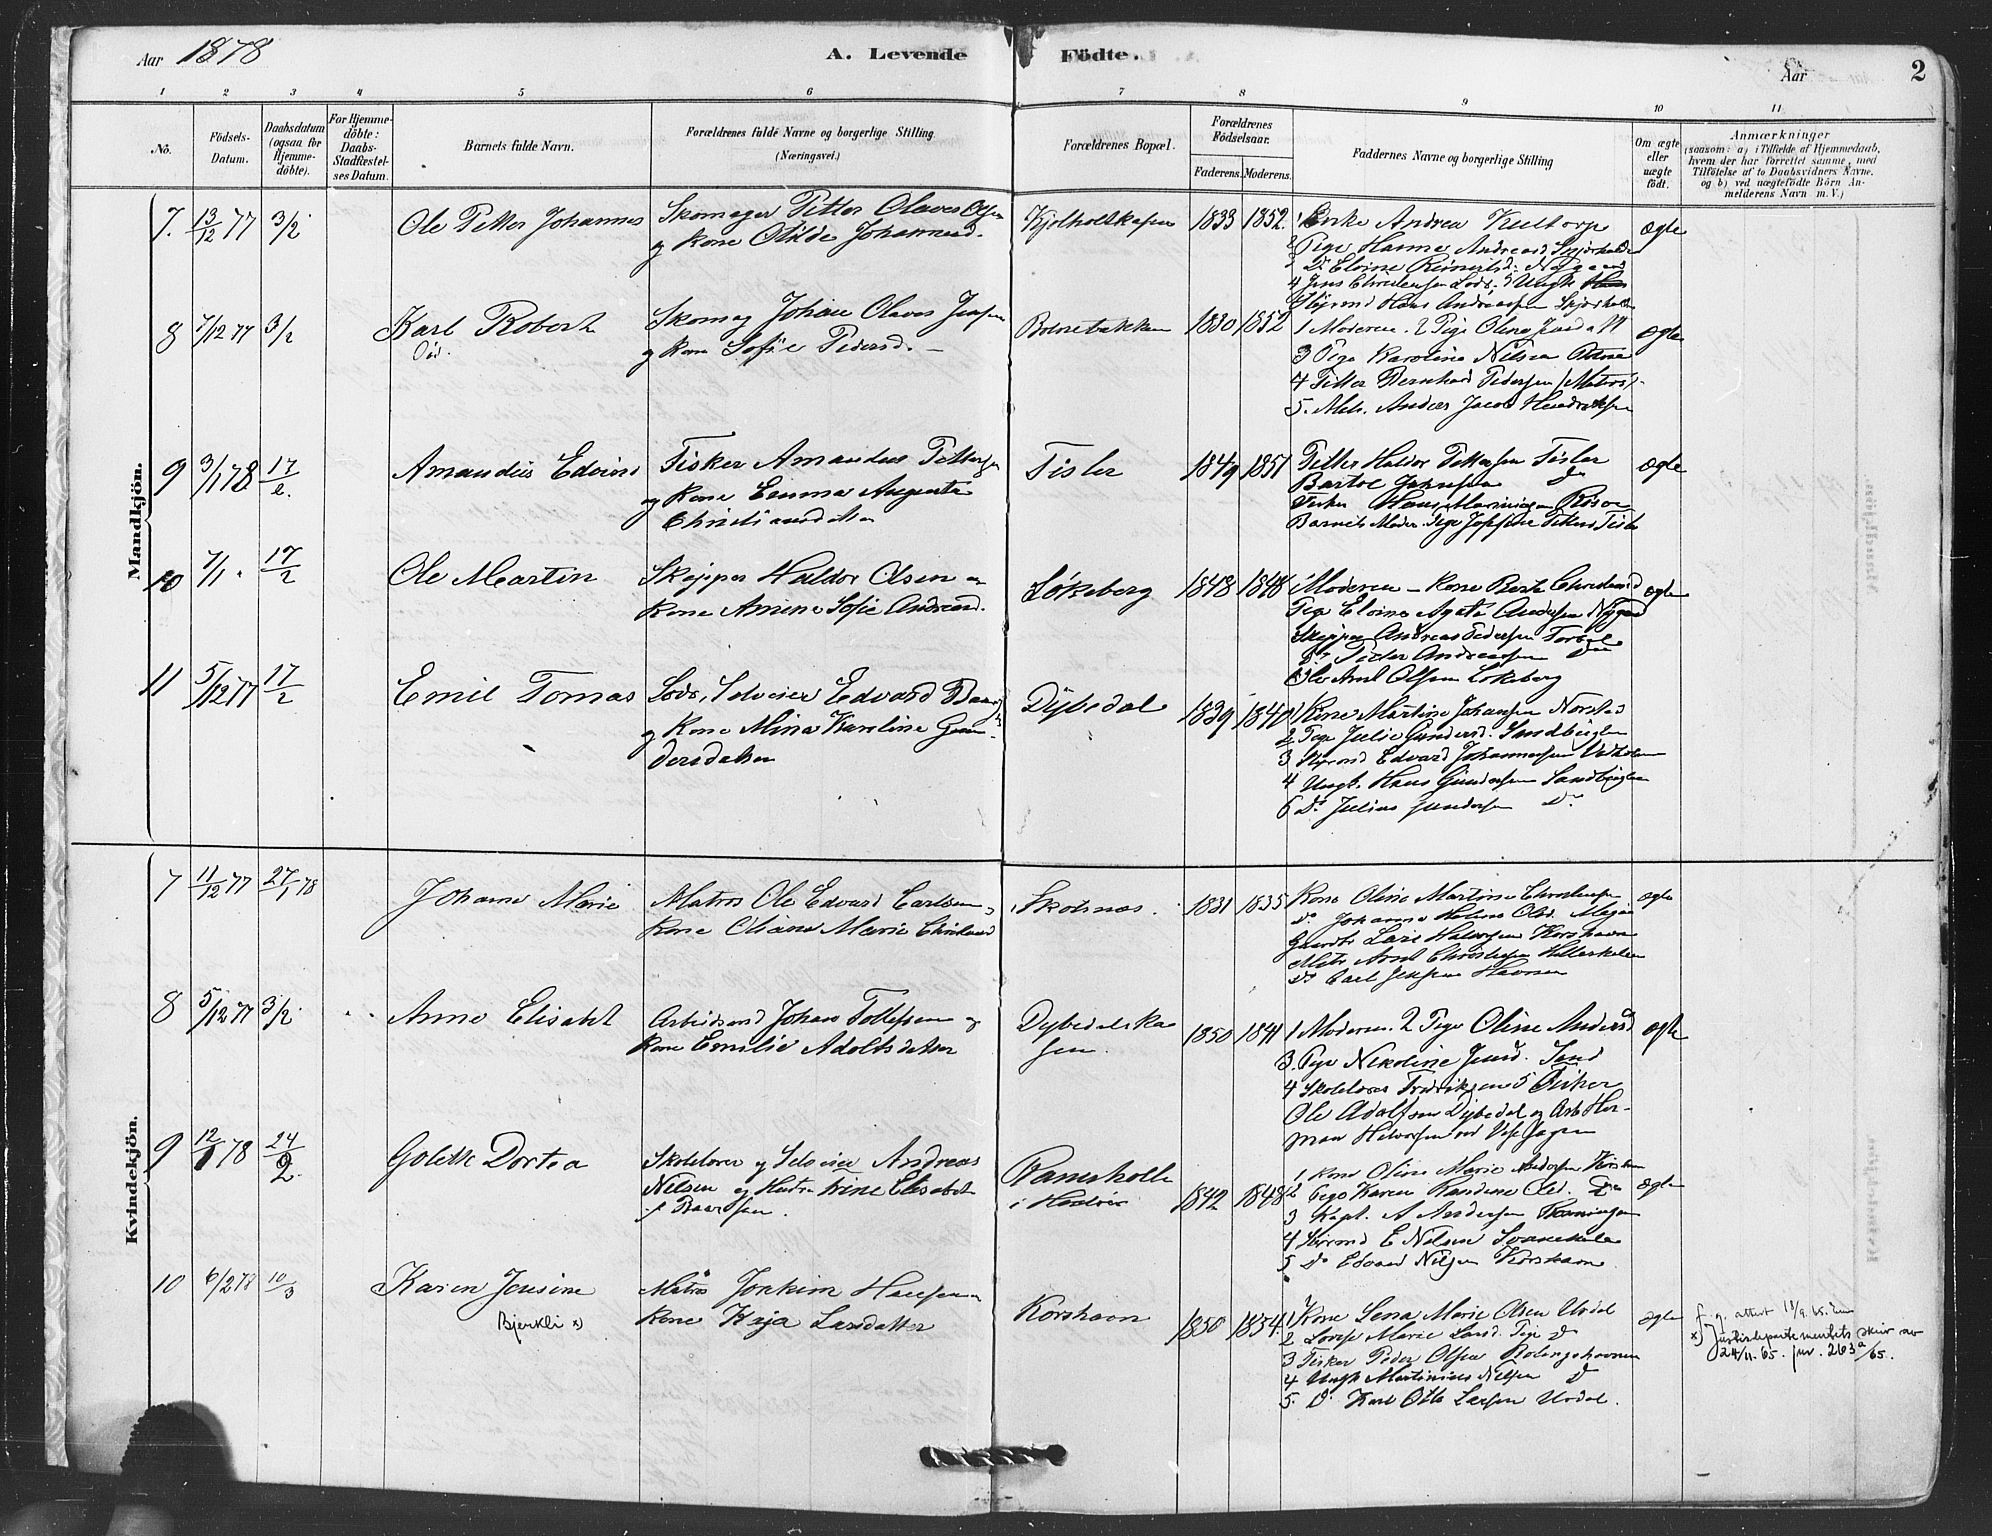 Aar 1878
A. Levende Födte.
Aar 2
1 2 3 4 5 6 7 8 9 10 11
No.
Födsels-
Datum.
Daabsdatum
(ogsaa for
Hjemme-
döbte).
For Hjemme-
döbte:
Daabs-
Stadfæstel-
ses Datum.
Barnets fulde Navn.
Forældrenes fulde Navne og borgerlige Stilling
(Næringsvei.)
Forældrenes Bopæl.
Forældrenes
Födselsaar.
Faderens. Moderens.
Faddernes Navne og borgerlige Stilling
Om ægte
eller
uægte
födt.
Anmærkninger
(saasom: a) i Tilfælde af Hjemmedaab,
hvem der har forrettet samme, med
Tilföielse af to Daabsvidners Navne.
og b) ved uægtefödte Börn An-
melderens Navn m. V.)
Mandkjön.
7. 13/12 77 3/2
Ole Petter Johannes
Skomager Petter Olaves Olsen
og Kone Otilde Johannesd.
1833 1852.
Enke Andrea
2 Pige Hanne Andreasd
4 Jens Christensen Lods.
Hans Andreassen
ægte
8 7/12 77 3/2
Karl Robert
Död.
Skomag Johan Olaves Jensen
og Kone Sofie Pedersd.
1830 1852
1 Moderen. 2 Pige
3 Pige Karoline Nilsen
4 Petter Bernhard Pedersen (Matros)
5. Mats. Anders Jacob Hendriksen
ægte
9 3/1 78 17/2.
Amandus Edvard
Fisker Amandus Pettersen
og Kone Emma Augusta
Christiansdatter
Tisler
1849 1851
Petter Haldor Pettersen Tisler
Fisker Hans
Barnets Moder. Pige Josefine Petters Tisler
ægte
10 7/1 " 17/2
Ole Martin
Skipper Haldor Olsen og
Kone Amene Sofie Andreasd.
Lökeberg
1848 1848
1 Moderen – Kone Berte Christiansd
Pige Elvine Agate Andersen
Skipper Andreas Pedersen
Do Peder Andreassen Do
Ole Anel Olsen Lökeberg
ægte
11 5/12 77 17/2
Emil Tomas
Lods, Selveier Edvard
og Kone Mina Karoline Gun-
dersdatter
Dybedal
1839 1840
1 Kone Martine Johansen
2 Pige Julie Gunders. Sandbugten
3 Edvard Johannessen
4 Ungk. Hans Gundersen Sandbugten
6 Do Julius Gundersen Do
Kvindekjön.
7 11/12 77 27/1 78
Johanne Marie
Matros Ole Edvard Carlsen og
Kone Oliane Marie
1831 1835
Kone Oline Martine Christensen
Do Johanne Helene Olsd.
Gaardbr Lars Halvorsen Korshavn
Do Carl Jensen Havnen
ægte
8 5/12 77 3/2
Anne Elisabet
Arbeidsmd Johan Tollefsen og
Kone Emilie Adolfsdatter
Dybedalska
sen.
1850 1841
1 Moderen. 2 Pige Oline Andersd
3. Pige Nikoline Jensd. Sand
4 Skolelærer Fredriksen 5 Fisker
Ole Adolfsen Dybedal og Arb Her-
man Halvorsen ved
ægte
9 12/1 78 24/2
Golette Dortea
Skolelærer og Selveier Andreas
Nilsen og Hustru Trine Elisabet
f Baarsen.
Ramsholt
i
1842 1848
1 Kone Oline Marie Andersen
2 Pige Karen Randine Olsd. Do
3 Kapt. A Andersen
4 E Nilsen
5 Do Edvard Nilsen Korshavn
ægte
10 6/2 78 10/3
Karen Jensine
Bjerkli x)
Matros Joakim Hansen
Kone Kaja Larsdatter
Korshavn
1850 1854.
1 Kone Lena Marie Olsen Urdal
2 Lovise Marie Larsd. Pige Do
3 Fisker Peder Olsen
4 Ungk Martinius Nilsen Do
5. Do Karl Otto Larsen Urdal.
ægte
f. g. attest 13/9. 65.
x) Justisdepartementets skriv av
24/11. 65. jnr. 263a/65.